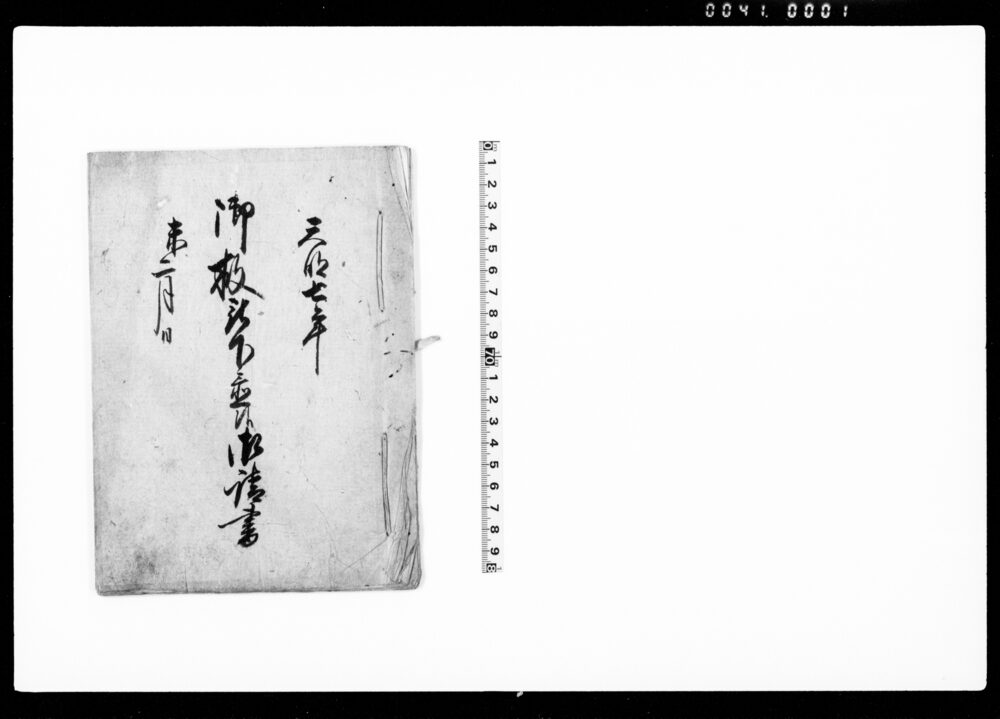 0041. 0001
天明七年
御
下
御請書
未二月日
0 1 2 3 4 5 6 7 8 9 70 1 2 3 4 5 6 7 8 9 8